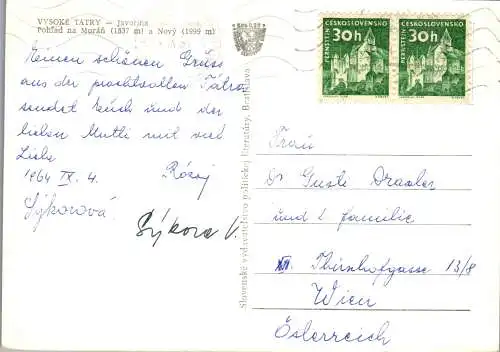 VYSOKÉ TATRY — Javorina
Pohľad na Muráň (1837 m) a Nový (1999 m)
Meinen schönen Gruss
aus der prachtvollen Tátra
sendet Euch und der
lieben Mutti mit viel
Liebe
1964 IX. 4. Rózsj
Sýkorová
Sýkora V.
Slovenské vydavateľstvo politickej literatúry, Bratislava
ČESKOSLOVENSKO
30h
PERNŠTEJN
ČESKOSLOVENSKO
30h
PERNŠTEJN
Frau
Dr Gusti Draxler
und l. Familie
Thirnhofgasse 13/8
Wien
Österreich